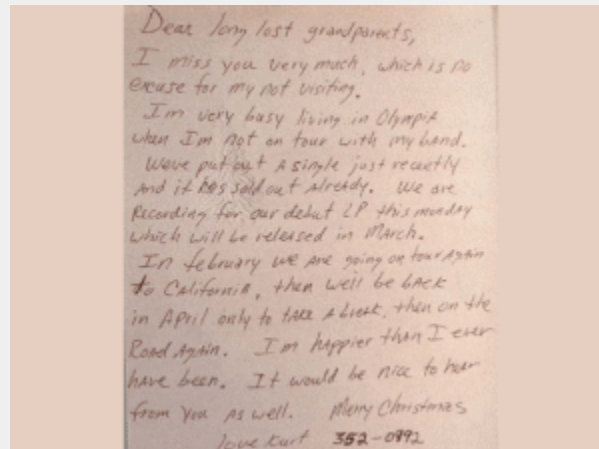 Dear long lost grandparents,
I miss you very much, which is no
excuse for my not visiting.
I'm very busy living in Olympia
when I'm not on tour with my band.
Weve put out a single just recently
and it has sold out already. We are
Recording for our debut LP this monday
which will be released in March.
In february we are going on tour again
to California, then we'll be back
in April only to take a break, then on the
Road again. I'm happier than I ever
have been. It would be nice to hear
from you as well. Merry Christmas
love Kurt 352-0992